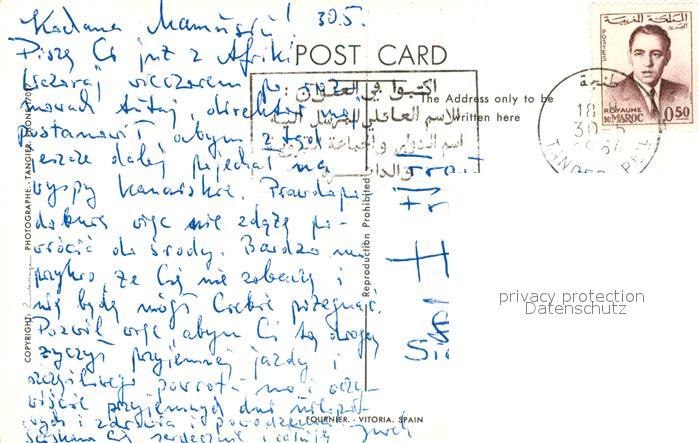 Kochana Mamusiu! 30.5.
Piszę Ci już z Afriki
wieczorem po
tutaj, direktor mój
postanowił abym z tąd
jeszcze dalej pojechał na
wyspy kanarskie. Prawdopo-
dobnie więc nie zdążę po-
wrócić do środy. Bardzo mi
przykro, że Cię nie zobaczę i
nie będę mógł Ciebie pożegnać.
Pozwól więc abym Ci tą drogą
życzył przyjemnej jazdy i
szczęśliwego powrotu no i ocze-
przyjemnych dni
i zdrowia i powodzenia
Ściskam Cię serdecznie i całuję Jurek
POST CARD
The Address only to be
written here
اكتبوا في العنوان :
الاسم العائلي للمرسل اليه
اسم الدوار والجماعة
والدائرة
المملكة المغربية
POSTES
ROYAUME
DU MAROC
0,50
طنجة
18
30-5
1964
TANGER
COPYRIGHT PHOTOGRAPHE. TANGIER.
Reproduction Prohibited
FOURNIER. - VITORIA. SPAIN
Frau
Fr
H
Si
privacy protection
Datenschutz